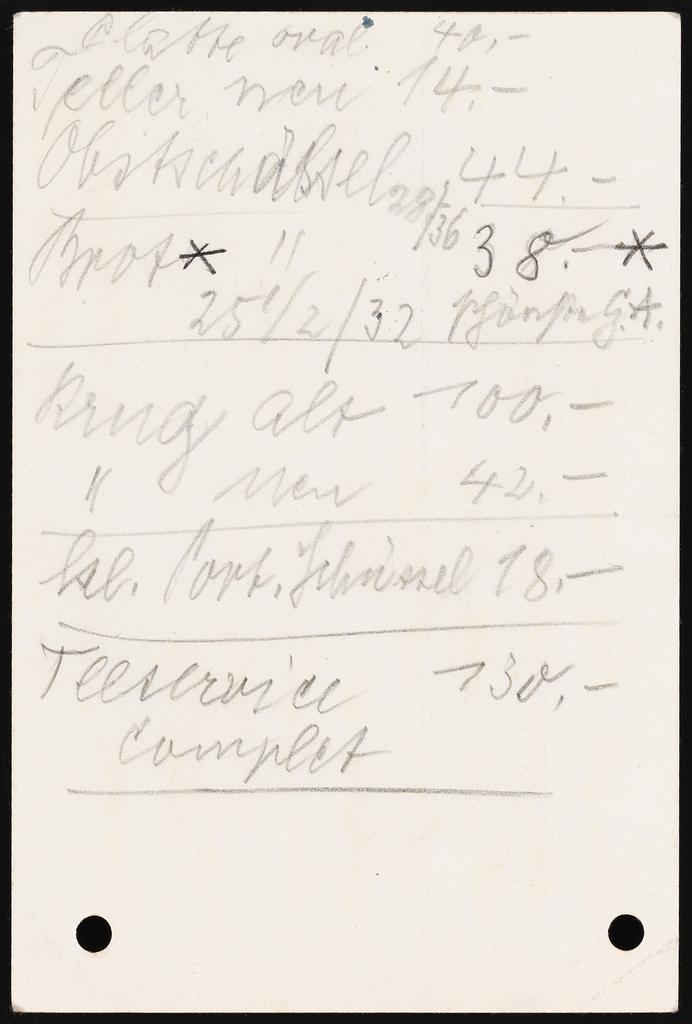 Platte oval 40,-
Teller neu 14.-
Obstschüssel 44.-
28/36
Brot * " 38.- *
25 1/2 / 32 G.A.
Krug alt 100,-
" neu 42.-
kl. Port. Schüssel 18.-
Teeservice 130,-
complet